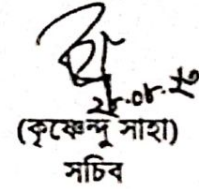 ২৮.০৮.২৩
(কৃষ্ণেন্দু সাহা)
সচিব